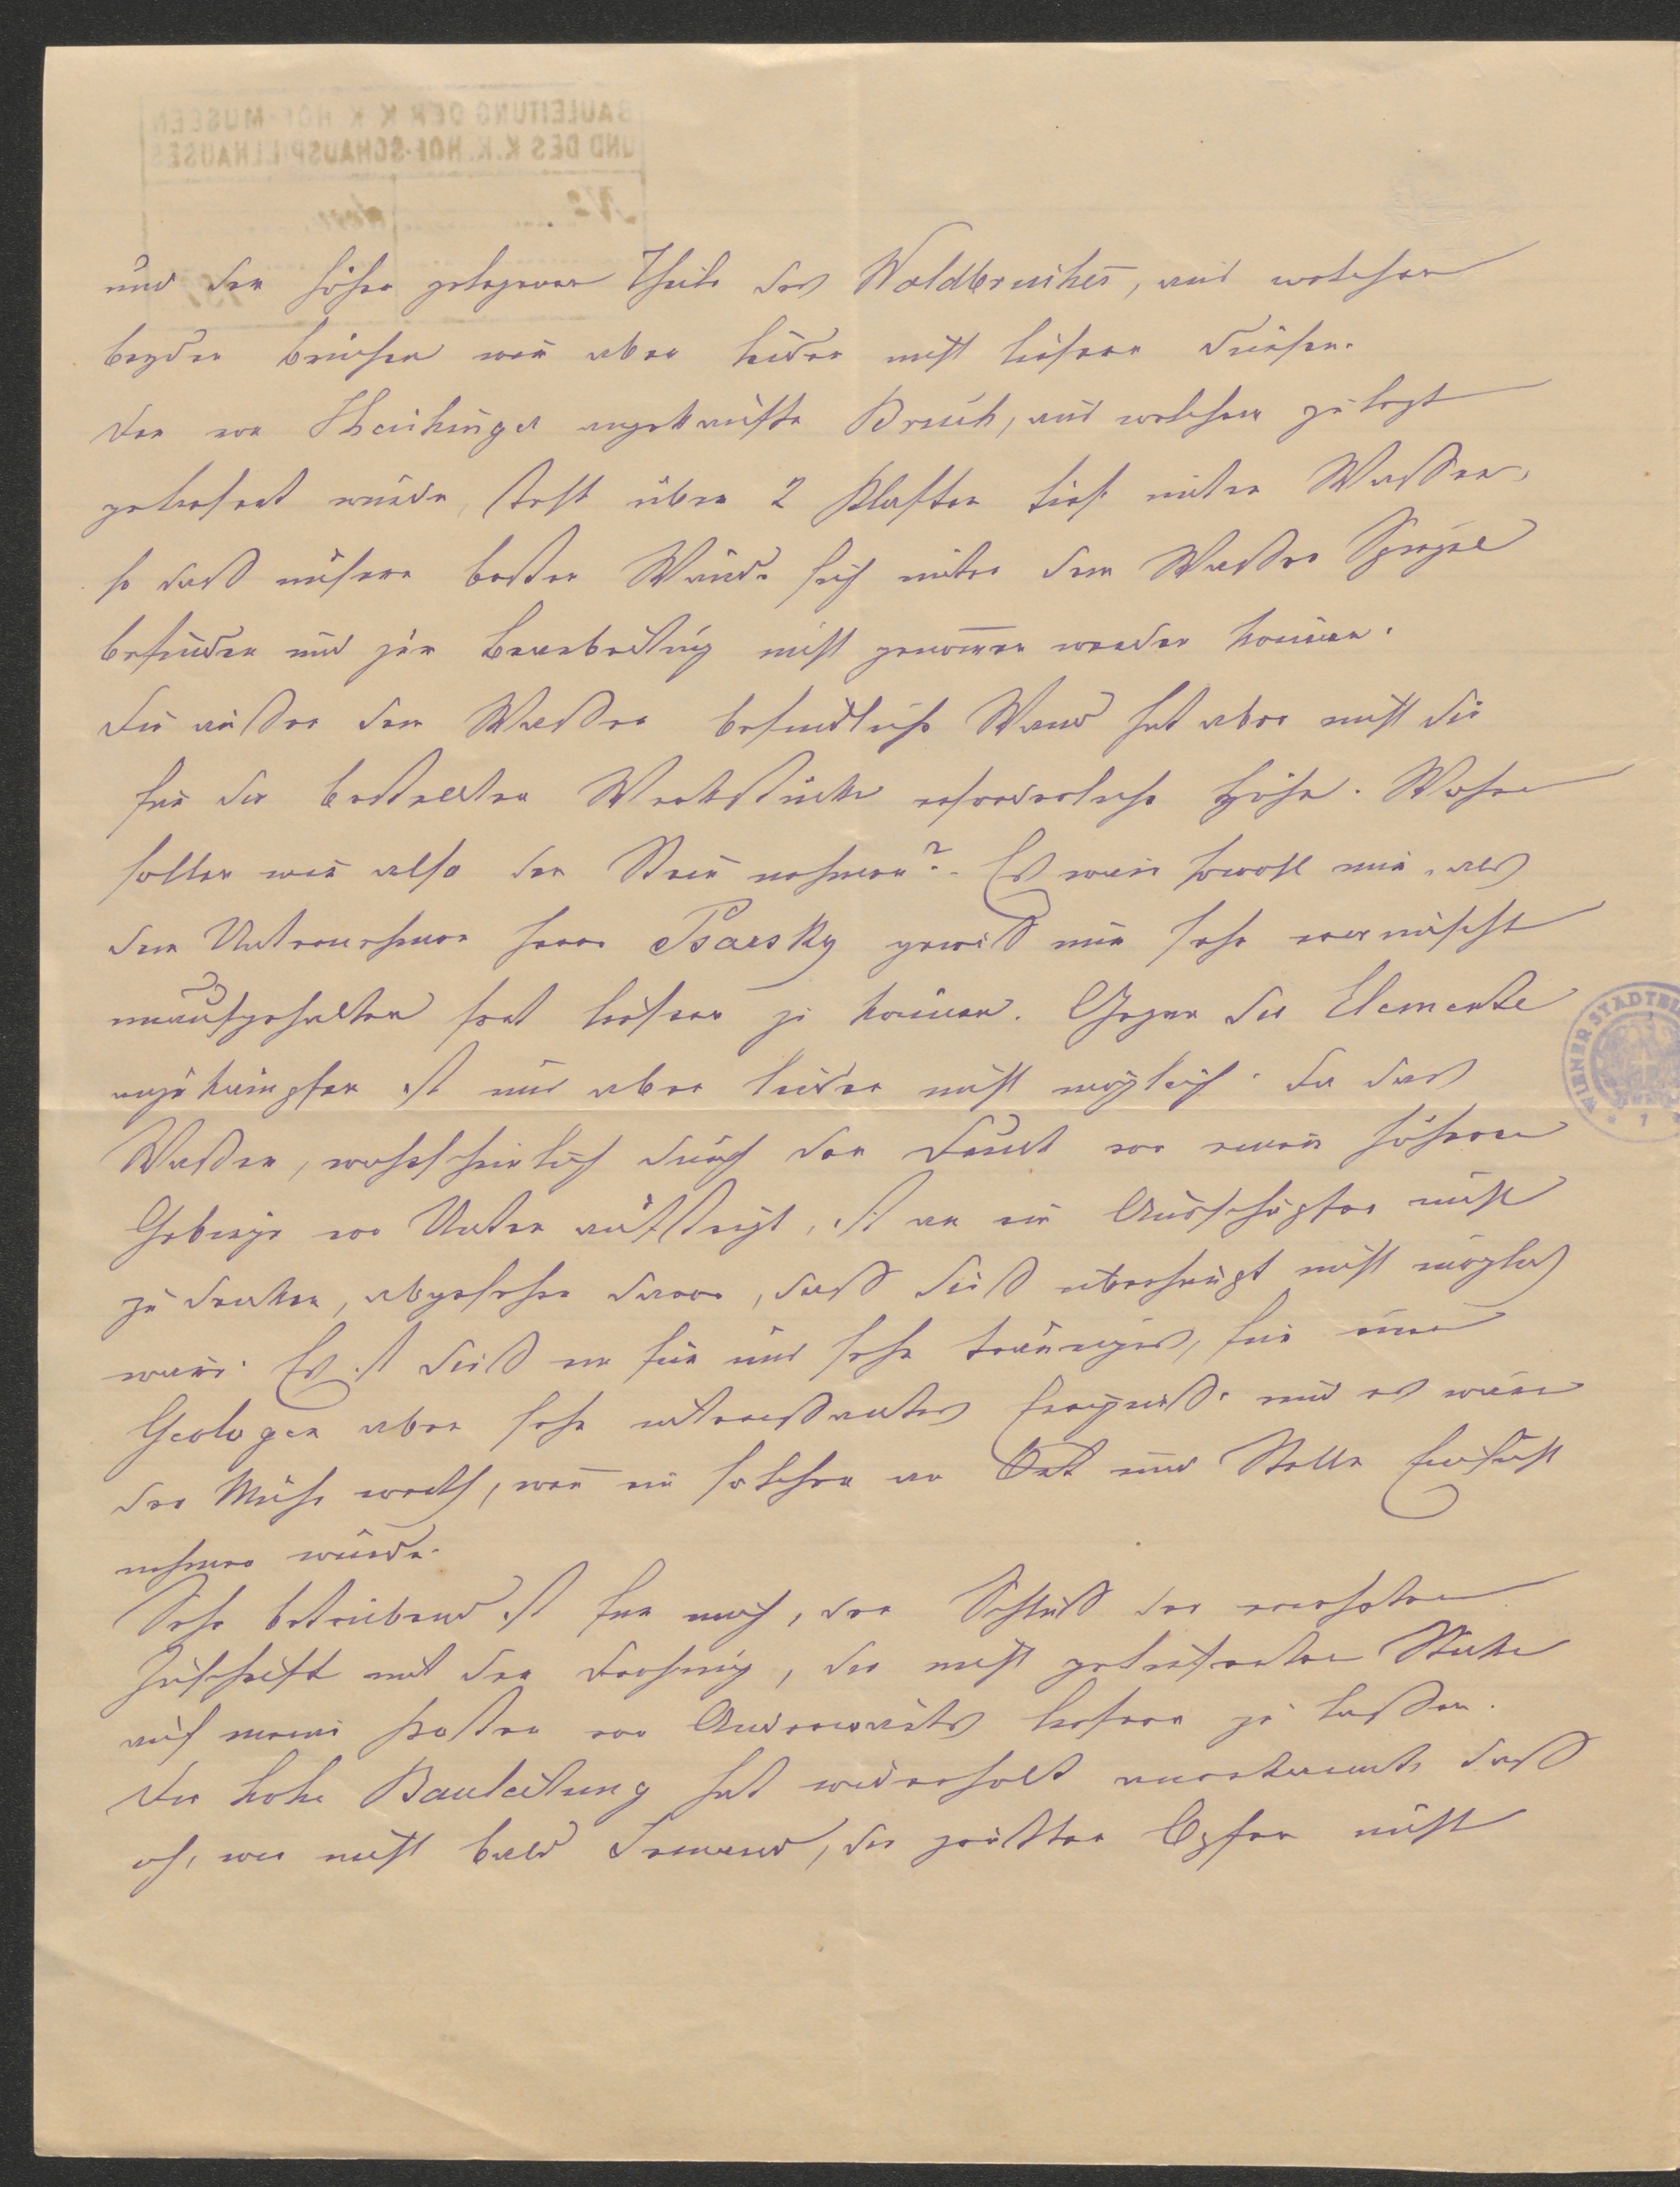 BAULEITUNG DER K. K. HOF-MUSEEN
UND DES K. K. HOF-SCHAUSPIELHAUSES
No
und der höher gelegenen Theile des Waldbruches, aus welchen
beyden Brüchen wir aber leider nicht liefern dürfen.
Der von angekaufte Bruch, aus welchem zuletzt
geliefert wurde, steht über 2 Klafter tief unter Wasser,
so daß unsere besten Wände sich unter dem Wasser Spiegel
befinden und zur Bearbeitung nicht genommen werden können.
Die außer dem Wasser befindliche Wand hat aber nicht die
für die bestellten Werkstücke erforderliche Höhe. Woher
sollen wir also den Stein nehmen? Es wäre sowohl mir, als
dem Unternehmer Herrn Psarsky gewiß nur sehr erwünscht
unaufgehalten fort liefern zu können. Gegen die Elemente
anzukämpfen ist uns aber leider nicht möglich. Da das
Wasser, wahrscheinlich durch den Druck von einem höheren
Gebirge von Unten aufsteigt, ist an ein Ausschöpfen nicht
zu denken, abgesehen davon, daß dieß überhaupt nicht möglich
wäre. Es ist dieß ein für uns sehr trauriges, für einen
Geologen aber sehr interessantes Ereigniß, und es wäre
der Mühe werth, wenn ein solcher an Ort und Stelle Einsicht
nehmen würde.
Sehr betrübend ist für mich, der Schluß der verehrten
Zuschrift mit der Drohung, die nicht gelieferten Stücke
auf meine Kosten von Anderwärts liefern zu lassen.
Die hohe Bauleitung hat wiederholt anerkannt, daß
ich, wie nicht bald Jemand, die größten Opfer nicht
WIENER STADTBI
1